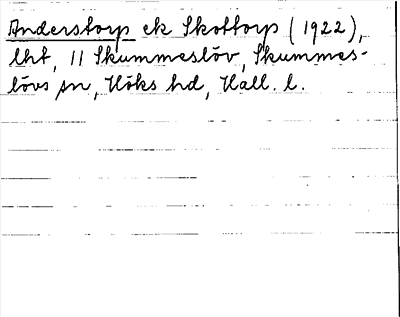 Anderstorp ek Skottorp (1922),
lht, 11 Skummeslöv, Skummes-
lövs sn, Höks hd, Hall. l.